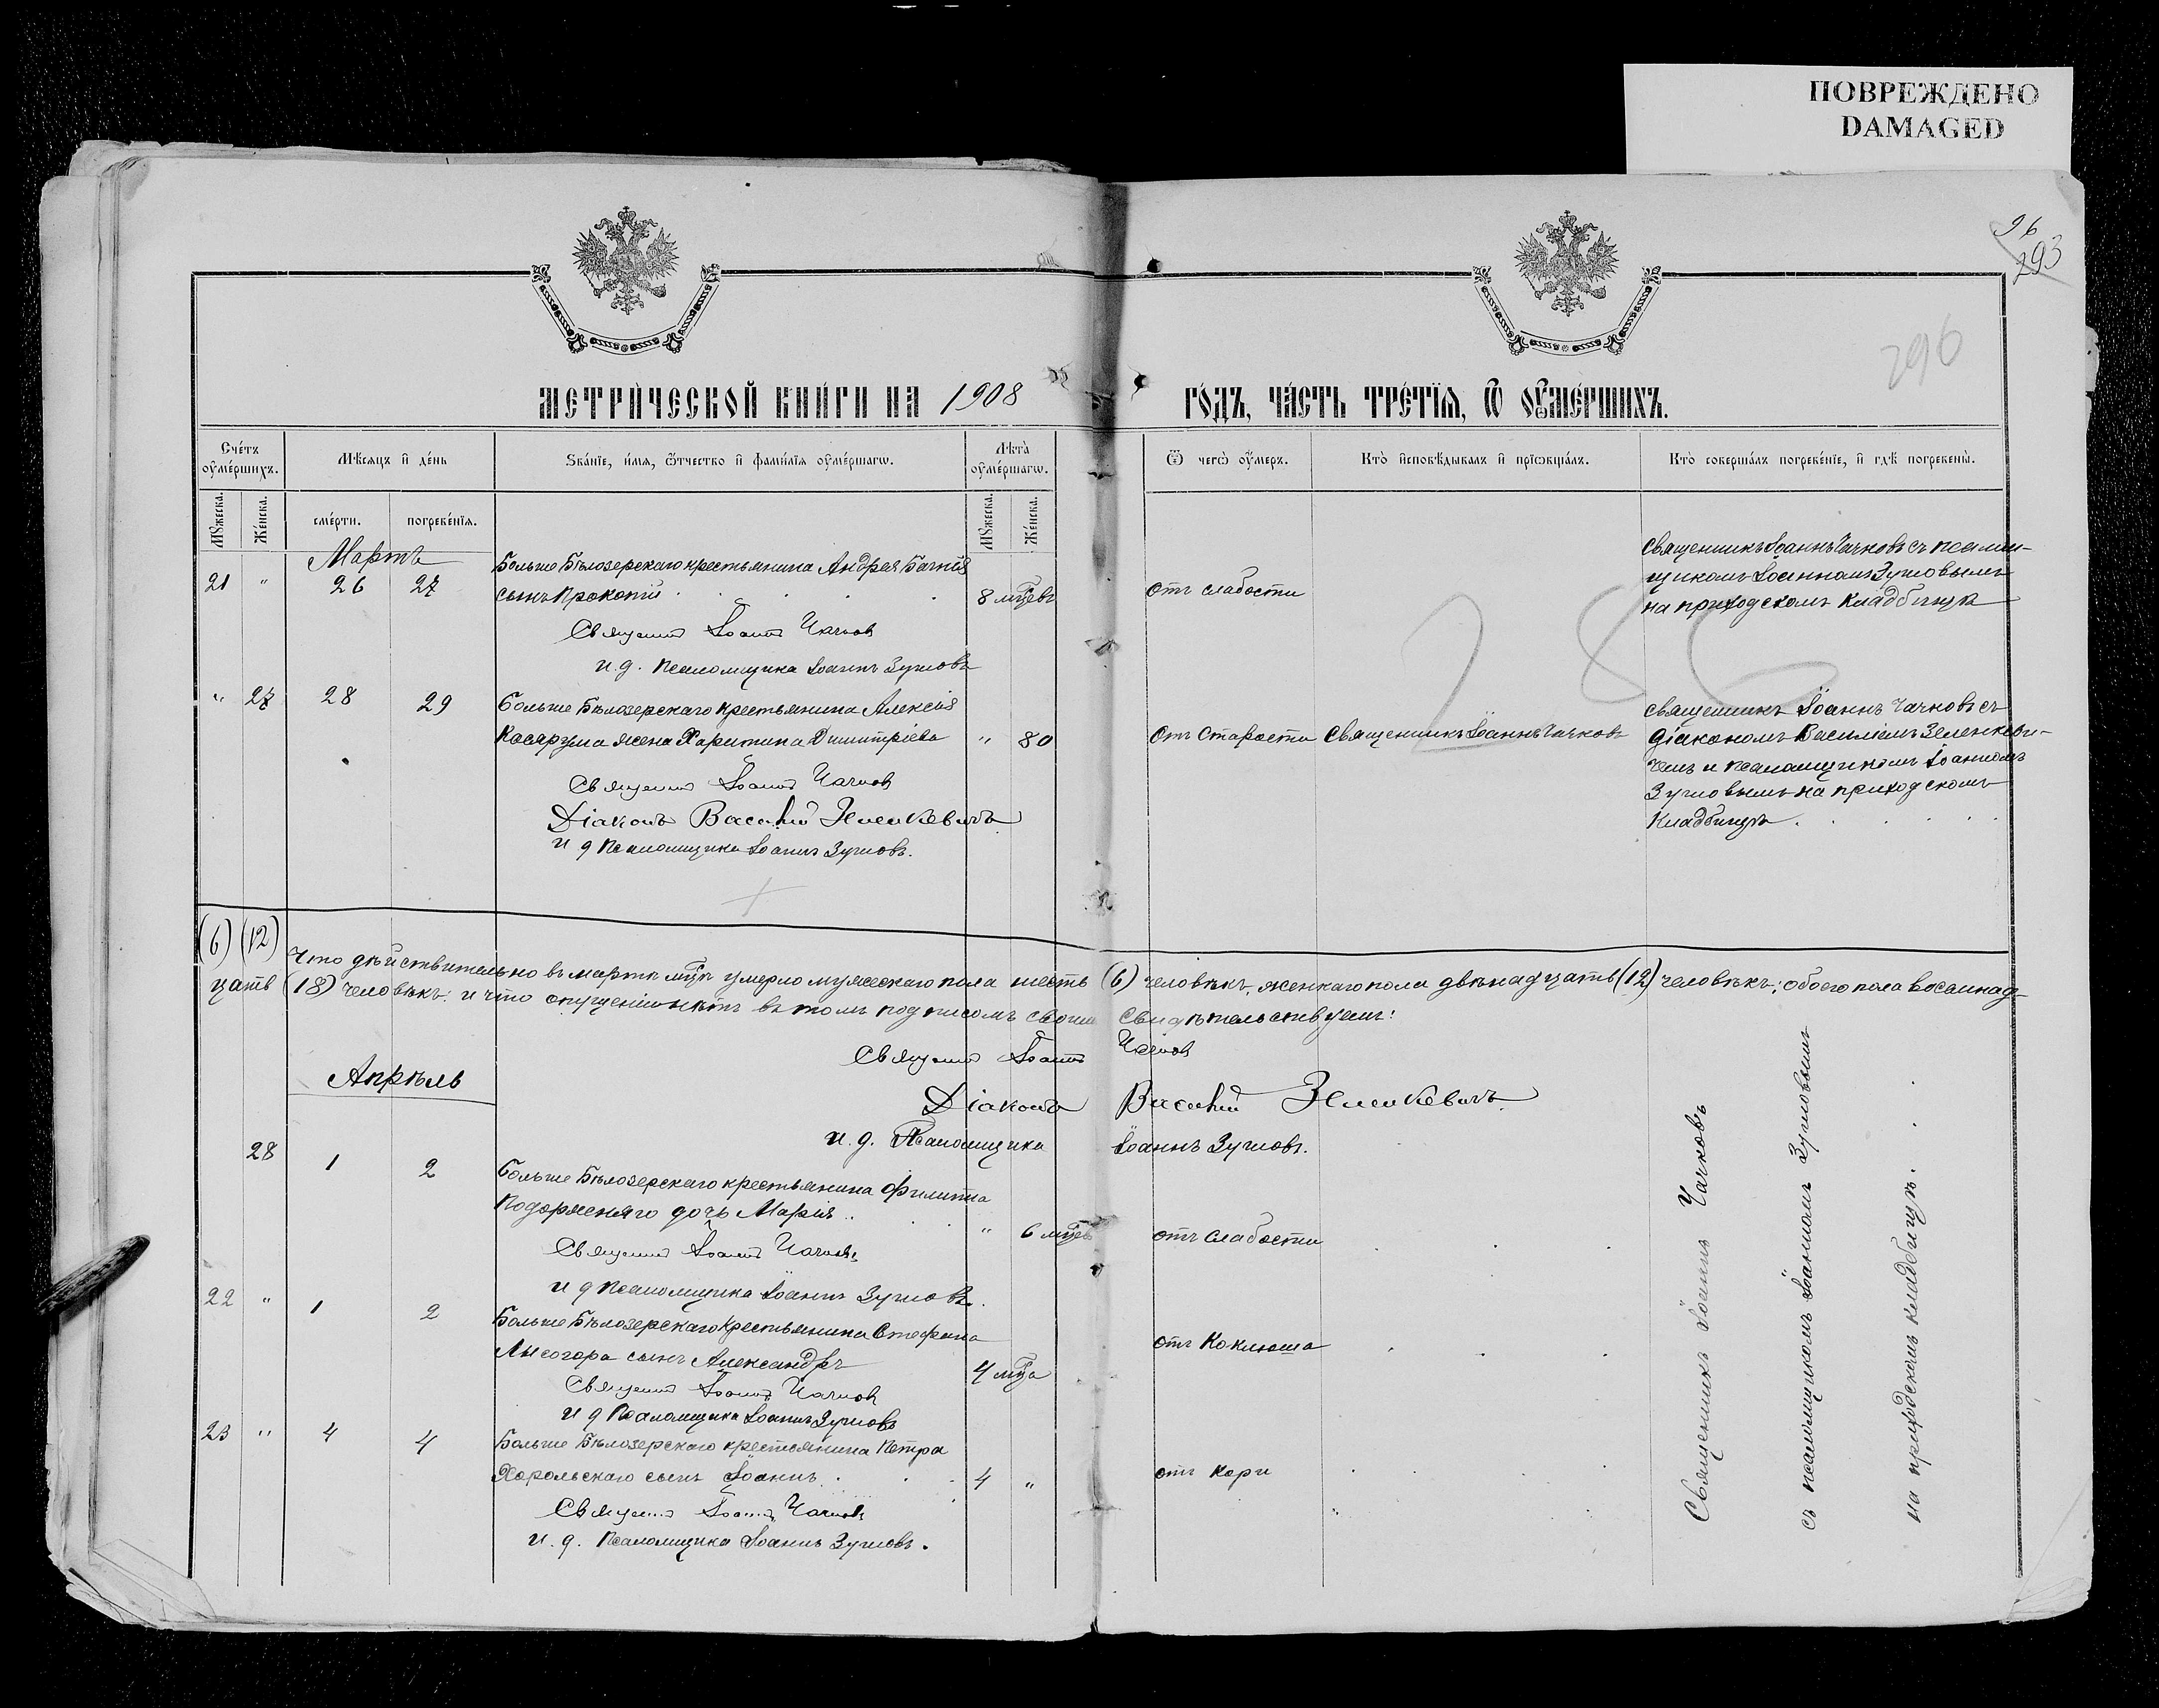 ПОВРЕЖДЕНО
DAMAGED
96
293
296
МЕТРИЧЕСКОЙ КНИГИ НА 1908 ГОДЪ, ЧАСТЬ ТРЕТІѦ, Ѿ ОУМЕРШИХЪ.
Счетъ оумершихъ.
Мѣсяцъ и день
Званіе, имя, ѿтчество и фамилія оумершагѡ.
Лѣта оумершагѡ.
Ѿ чегѡ оумеръ.
Кто исповѣдывалъ и пріѡбщалъ.
Кто совершалъ погребеніе, и гдѣ погребены.
Мужеска.
Женска.
смерти.
погребенія.
Мужеска.
Женска.
Мартъ
21 " 26 27
Больше Бѣлозерскаго крестьянина Андрея
сынъ Прокопій
8 мцевъ
отъ слабости
Священникъ Іоаннъ Чачковъ съ псалом-
щикомъ Іоанномъ
на приходскомъ кладбищѣ
Священникъ Іоаннъ Чачковъ
и. д. Псаломщика Іоаннъ
" 27 28 29
Больше Бѣлозерскаго крестьянина Алексія
жена Харитина Димитріева
" 80
Отъ старости
Священникъ Іоаннъ Чачковъ
Священникъ Іоаннъ Чачковъ съ
діакономъ Василіемъ Зеленкеви-
чемъ и псаломщикомъ Іоанномъ
на приходскомъ
кладбищѣ.
286
Священникъ Іоаннъ Чачковъ
Діаконъ Василій Зеленкевичъ
и д Псаломщика Іоаннъ
(6) (12)
Что дѣйствительно въ мартѣ мцѣ умерло мужескаго пола шесть (6) человѣкъ, женскаго пола двѣнадцать (12) человѣкъ; обоего пола восемнад-
цать (18) человѣкъ; и что опущенія нѣтъ въ томъ подписомъ своимъ свидѣтельствуемъ:
Священникъ Іоаннъ Чачковъ
Діаконъ Василій Зеленкевичъ
и. д. Псаломщика Іоаннъ
Апрѣль
28 1 2
Больше Бѣлозерскаго крестьянина Филиппа
дочь Марія
" 6 мцевъ
отъ слабости
Священникъ Іоаннъ Чачковъ
и д Псаломщика Іоаннъ
22 " 1 2
Больше Бѣлозерскаго крестьянина Стефана
Лысогора сынъ Александръ
4 мца
отъ коклюша
Священникъ Іоаннъ Чачковъ
и д Псаломщика Іоаннъ
23 " 4 4
Больше Бѣлозерскаго крестьянина Петра
Хорольскаго сынъ Іоаннъ
4 "
отъ кори
Священникъ Іоаннъ Чачковъ
и. д. Псаломщика Іоаннъ
Священникъ Іоаннъ Чачковъ
съ псаломщикомъ Іоанномъ
на приходскомъ кладбищѣ.